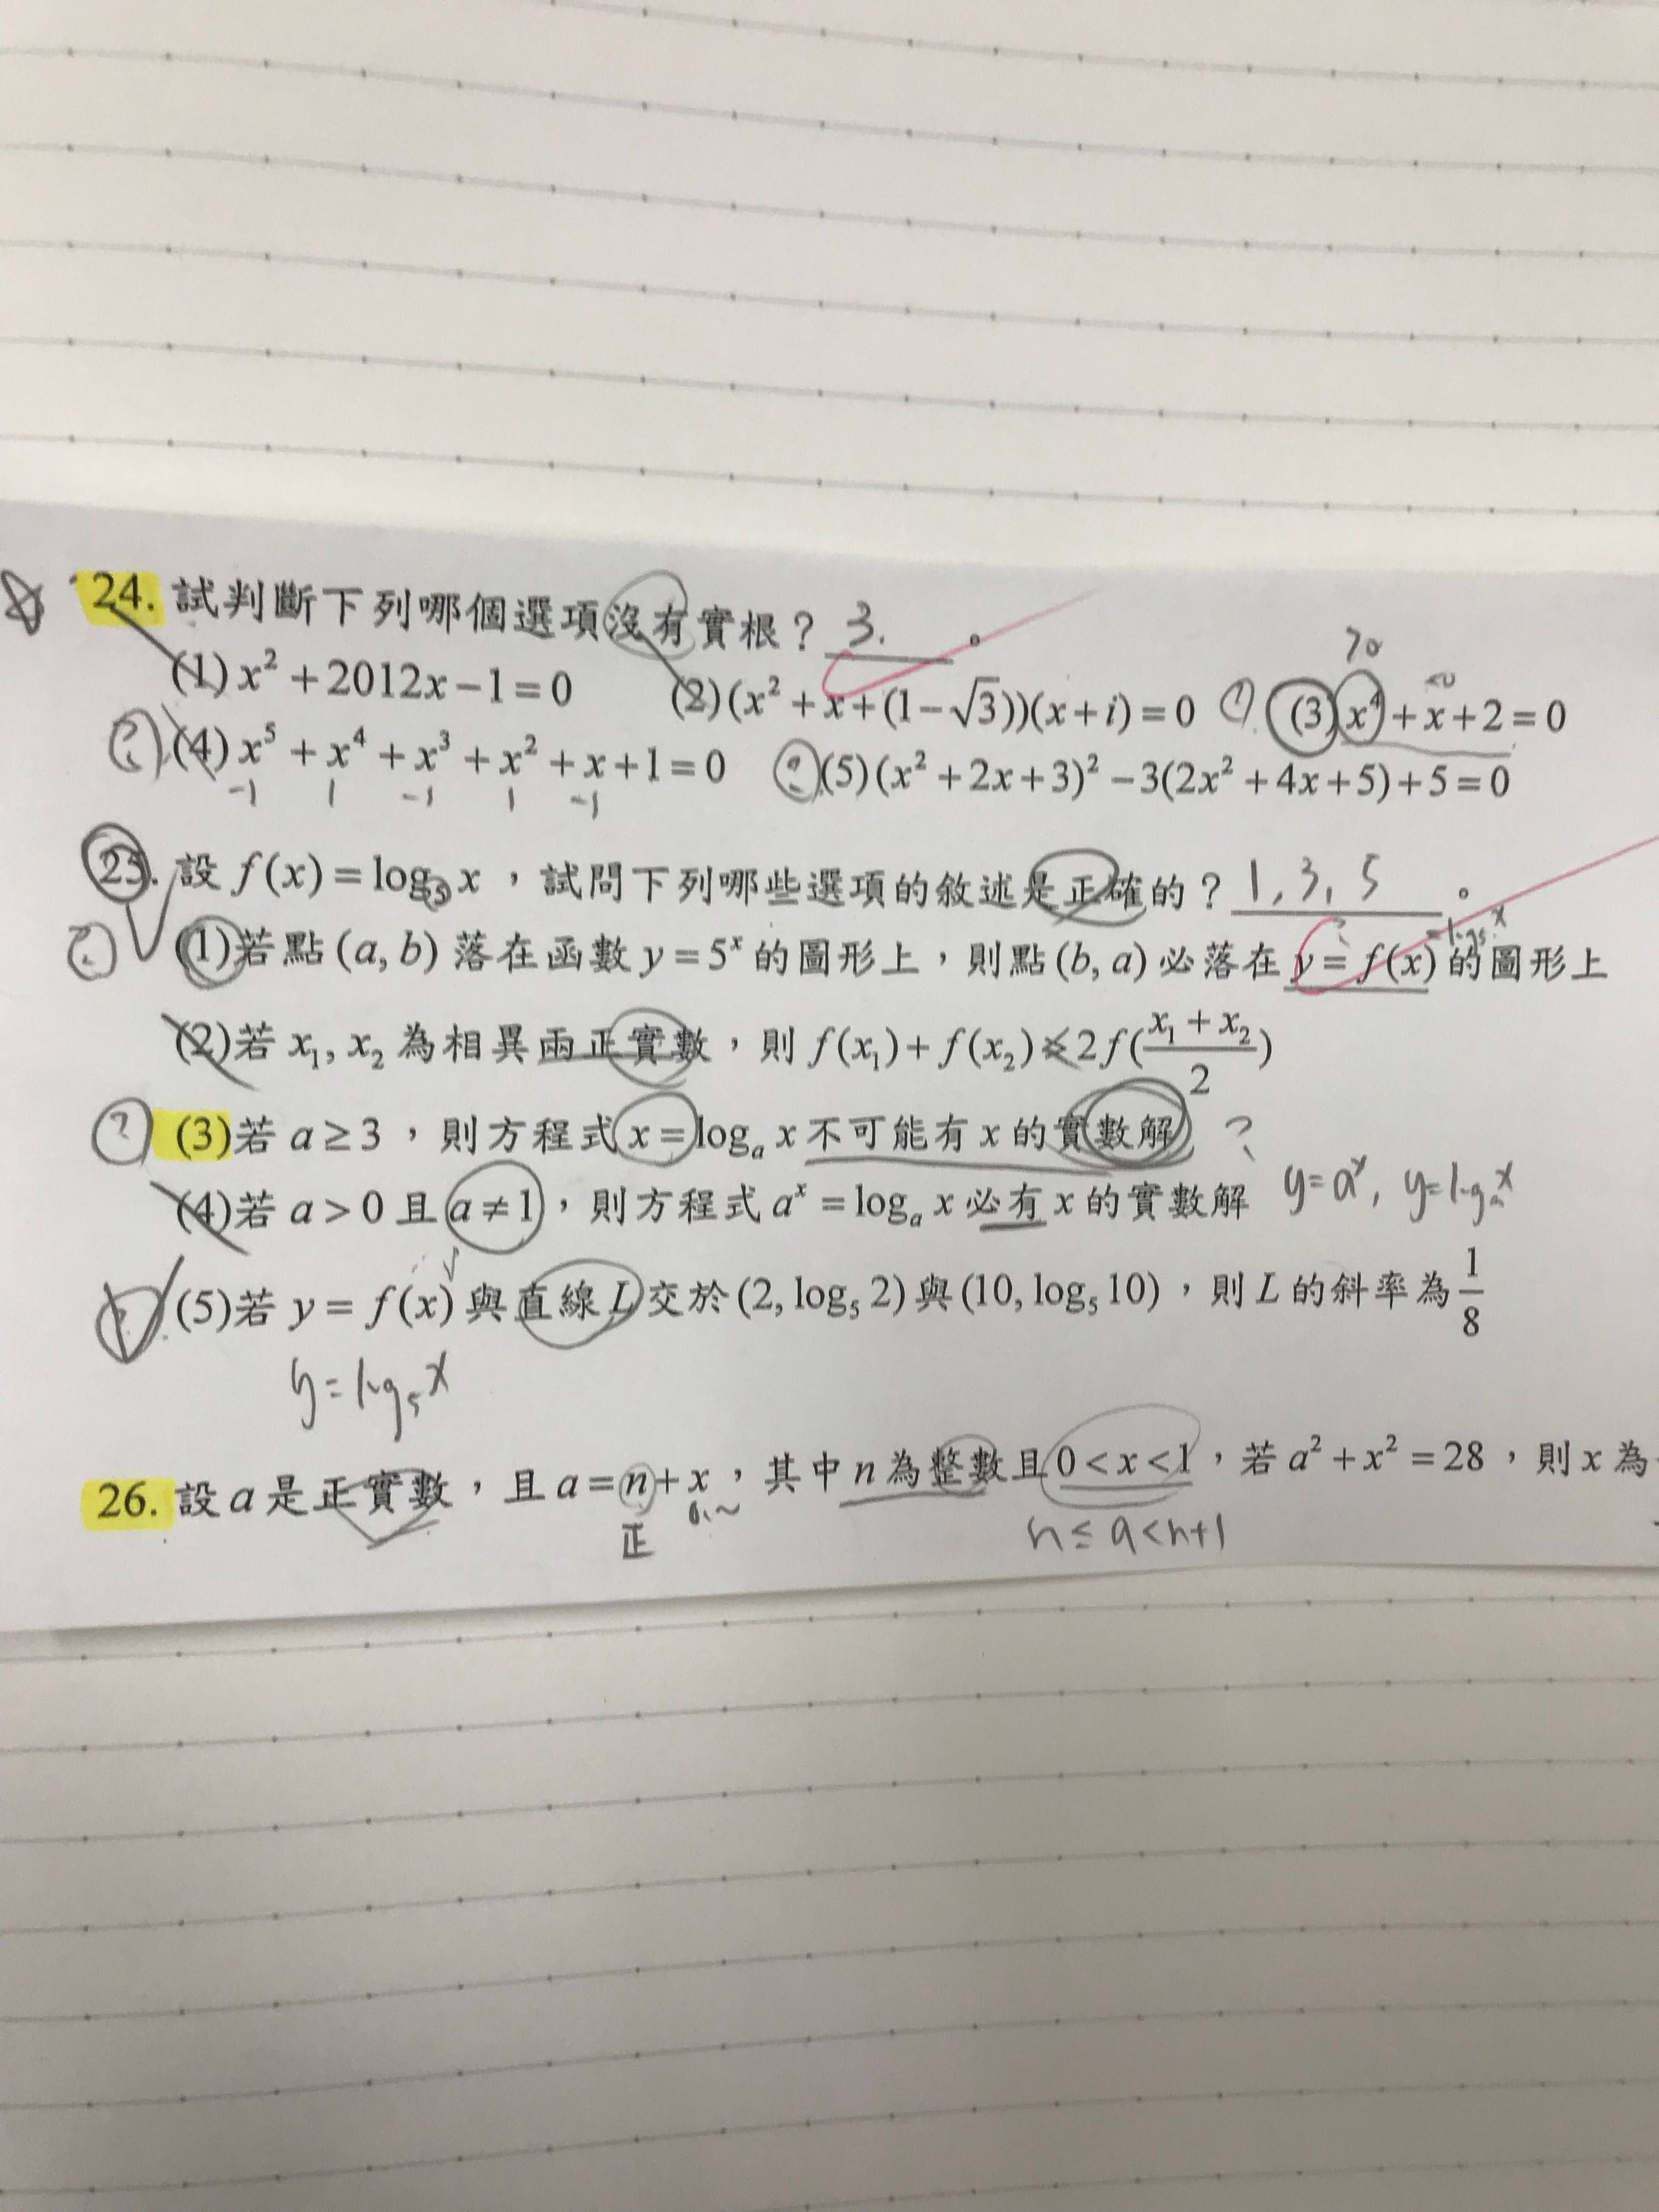 24. 試判斷下列哪個選項沒有實根？ 3. 。
>0
(1) x² + 2012x − 1 = 0 (2) (x² + x + (1 − √3))(x + i) = 0 (3) x⁴ + x + 2 = 0
? (4) x⁵ + x⁴ + x³ + x² + x + 1 = 0 ? (5) (x² + 2x + 3)² − 3(2x² + 4x + 5) + 5 = 0
−1 1 −1 1 −1
25. 設 f(x) = log₅ x ，試問下列哪些選項的敘述是正確的？ 1, 3, 5 。
= log₅ x
? (1)若點 (a, b) 落在函數 y = 5ˣ 的圖形上，則點 (b, a) 必落在 y = f(x) 的圖形上
(2)若 x₁, x₂ 為相異兩正實數，則 f(x₁) + f(x₂) < 2f((x₁ + x₂)/2)
? (3)若 a ≥ 3 ，則方程式 x = logₐ x 不可能有 x 的實數解 ?
(4)若 a > 0 且 a ≠ 1 ，則方程式 aˣ = logₐ x 必有 x 的實數解 y = aˣ, y = logₐ x
(5)若 y = f(x) 與直線 L 交於 (2, log₅ 2) 與 (10, log₅ 10) ，則 L 的斜率為 1/8
y = log₅ x
26. 設 a 是正實數，且 a = n + x ，其中 n 為整數且 0 < x < 1 ，若 a² + x² = 28 ，則 x 為
正 0.~ n ≤ a < n+1